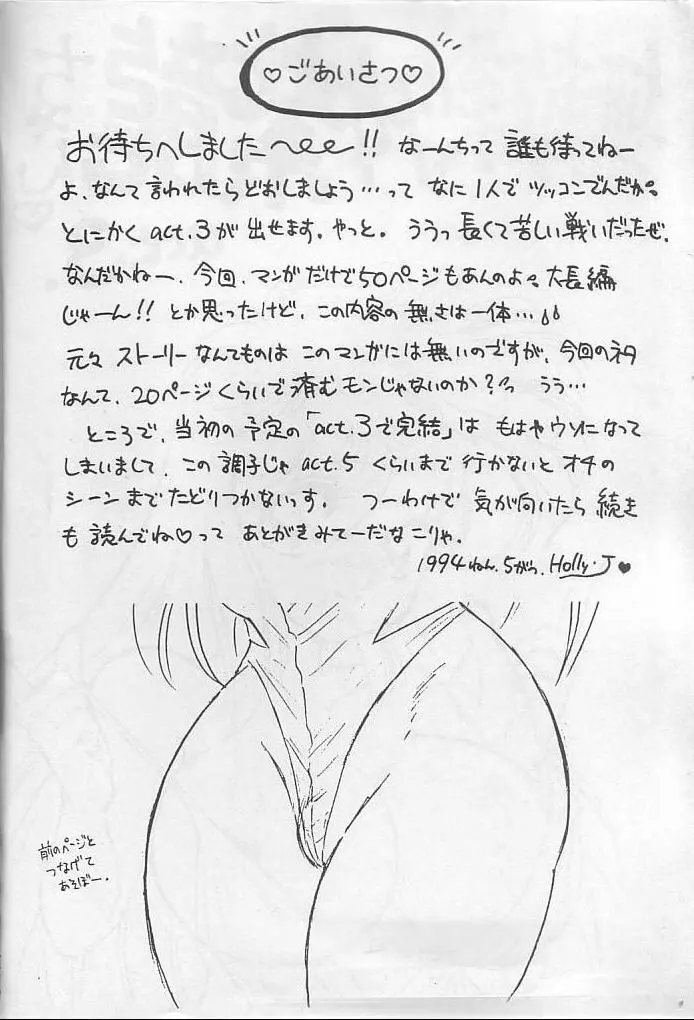 ♡ごあいさつ♡
お待ちへしました〜ee!! なーんちって 誰も待ってねー
よ、なんて言われたらどおしましょう…って なに1人で ツッコンでんだか。
とにかく act.3が 出せます。やっと。 ううっ 長くて苦しい戦いだったぜ。
なんだかねー、今回、マンガだけで50ページもあんのよ。大長編
じゃーん!! とか思ったけど、この内容の無さは一体…
元々 ストーリーなんてものは このマンガには無いのですが、今回のネタ
なんて、20ページくらいで済むモンじゃないのか?っっ うう…
ところで、当初の予定の「act.3で完結」は もはやウソになって
しまいまして、この調子じゃ act.5 くらいまで 行かないと オチの
シーンまでたどりつかないっす。 つーわけで 気が向いたら 続き
も 読んでね♡って あとがきみてーだな こりゃ。
1994ねん.5がつ. Holly・J♥
前のページと
つなげて
あそぼー。